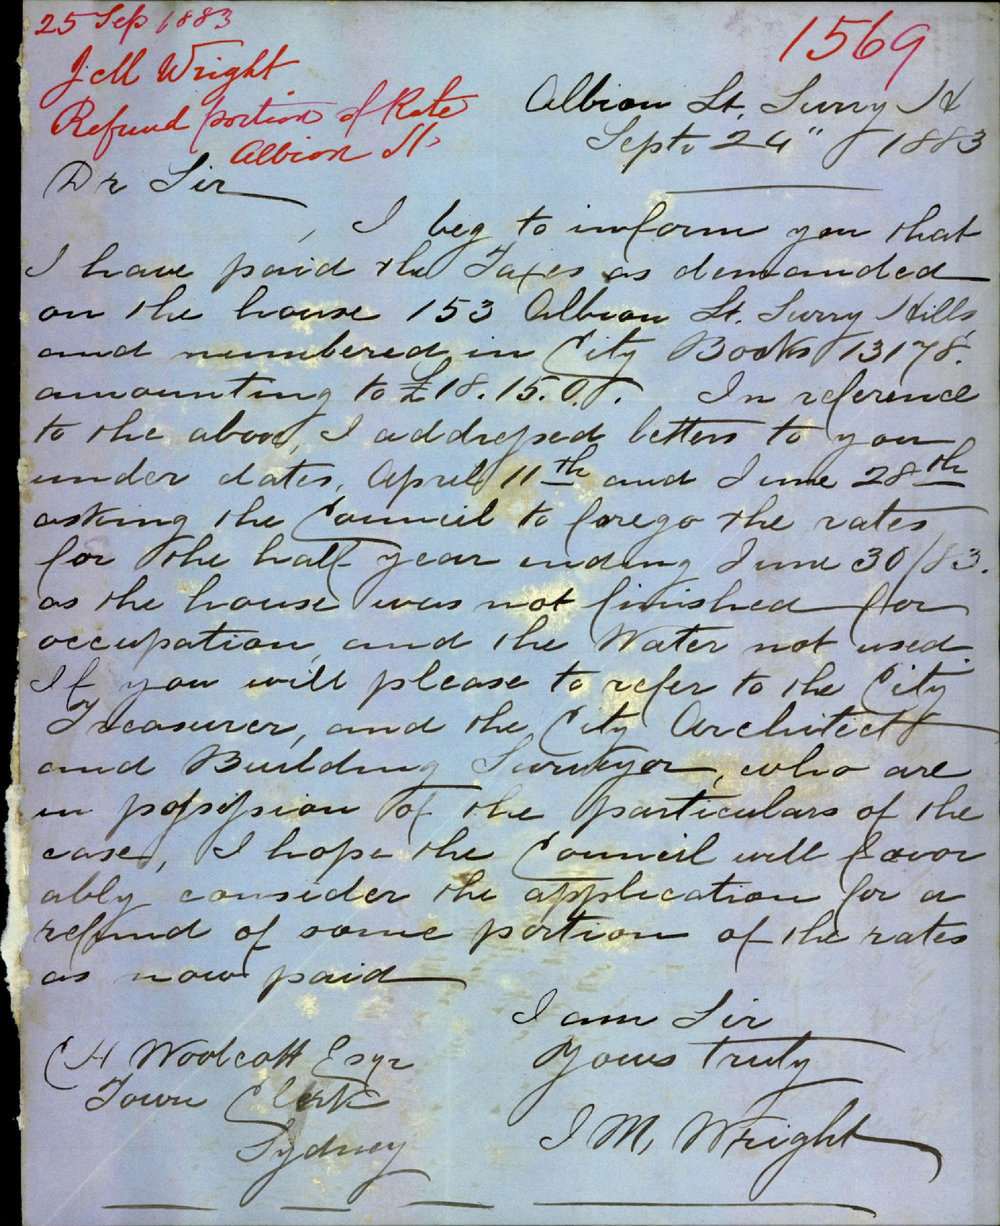 25 Sep 1883
1569
J M Wright
Refund portion of Rate
Albion St
Albion St. Surry H
Septr 24" 1883
Dr Sir
, I beg to inform you that
I have paid the Taxes as demanded
on the house 153 Albion St. Surry Hills,
and numbered in City Books 13178.
amounting to £18.15.0. In reference
to the above, I addressed letters to you
under dates, April 11th and June 28th
asking the Council to forego the rates
for the half year ending June 30/83.
as the house was not finished for
occupation, and the Water not used.
If you will please to refer to the City
Treasurer, and the City Architect
and Building Surveyor, who are
in possession of the particulars of the
case, I hope the Council will favor
ably consider the application for a
refund of some portion of the rates
as now paid
I am Sir
Yours truly
J M, Wright
C H Woolcott Esqr
Town Clerk
Sydney